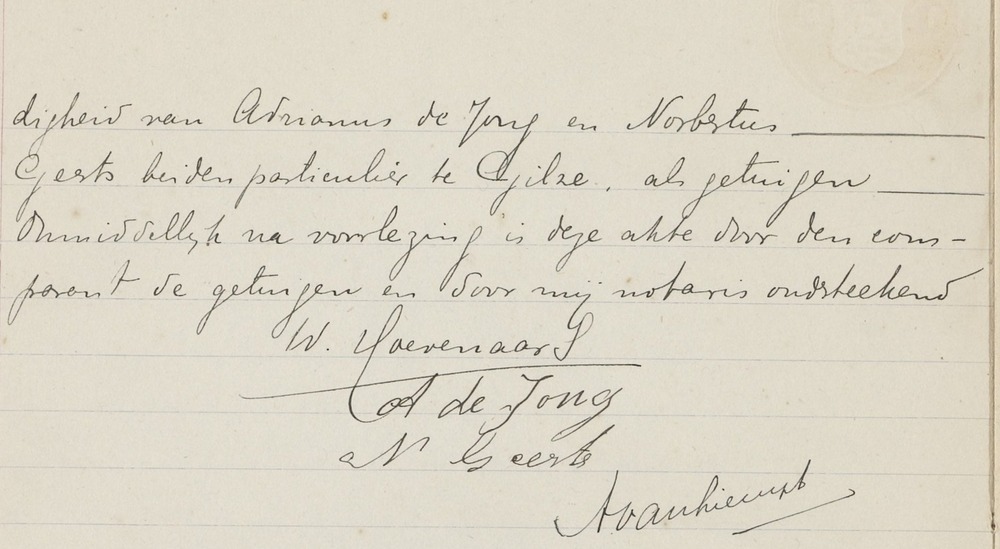 digheid van Adrianus de Jong en Norbertus
Geerts beiden particulier te Gilze, als getuigen
Onmiddellijk na voorlezing is deze akte door den com-
parant de getuigen en door mij notaris onderteekend
W. Hoevenaars
A de Jong
N Geerts